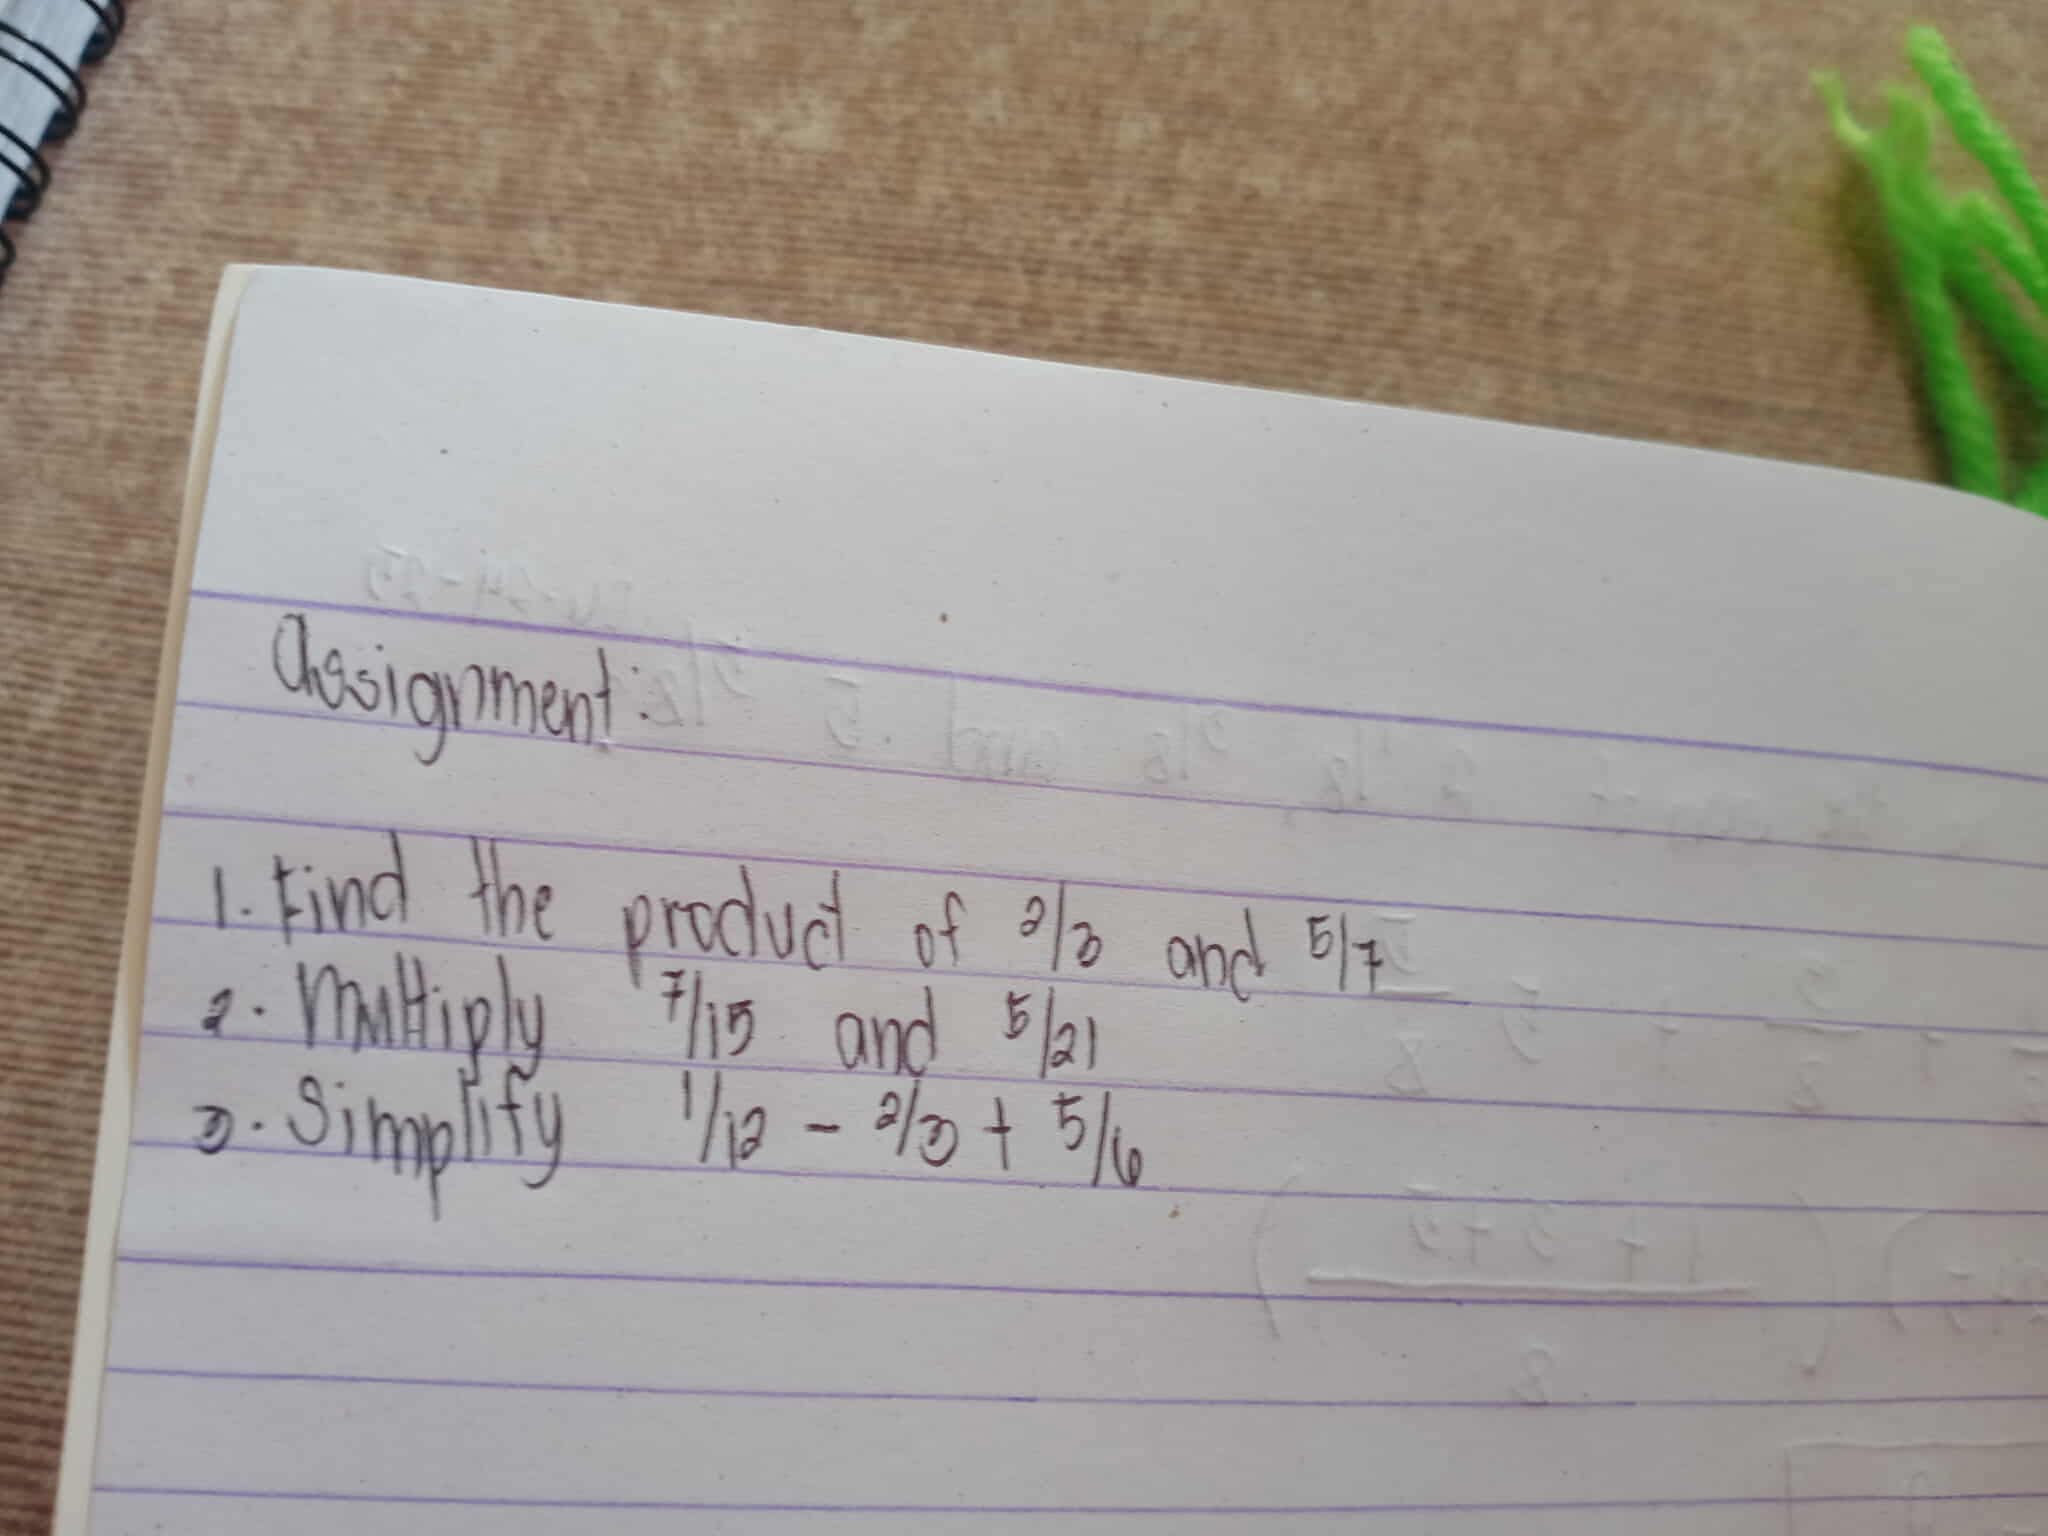 Assignment:
1. Find the product of 2/3 and 5/7
2. Multiply 7/15 and 5/21
3. Simplify 1/12 - 2/3 + 5/6